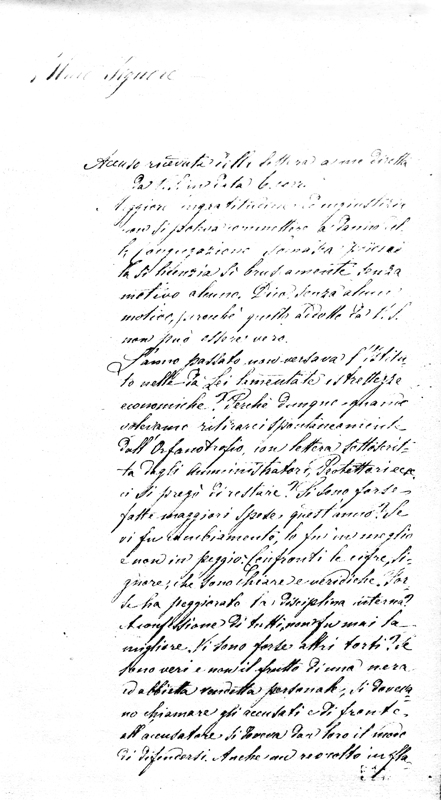 Signore
Accuso ricevuta della lettera a me diretta
da V. S. in data 6 corr.
Maggiore ingratitudine ed ingiustizia
non si poteva commettere a danno del
la Congregazione Somasca
la si licenzia sì bruscamente senza
motivo alcuno. Dico senza alcun
motivo, perchè quello addotto da V. S.
non può essere vero.
L'anno passato non versava l'Istitu-
to nelle da Lei lamentate istrettezze
economiche? Perchè dunque quando
volevamo ritirarci spontaneamente
dall'Orfanotrofio, con lettera sottoscrit-
ta dagli Amministratori, Protettori ecc.
ci si pregò di restare? Si sono forse
fatte maggiori spese quest'anno? Se
vi fu cambiamento, lo fu in meglio
e non in peggio: Confronti le cifre, Si-
gnore, che sono chiare e veridiche. For-
se ha peggiorato la disciplina interna?
A confessione di tutti, non fu mai la
migliore. Vi sono forse altri torti? Se
sono veri e non il frutto di una mera
ed abbietta vendetta personale, si doveva-
no chiamare gli accusati e di fronte
all'accusatore si doveva dar loro il modo
di difendersi. Anche un